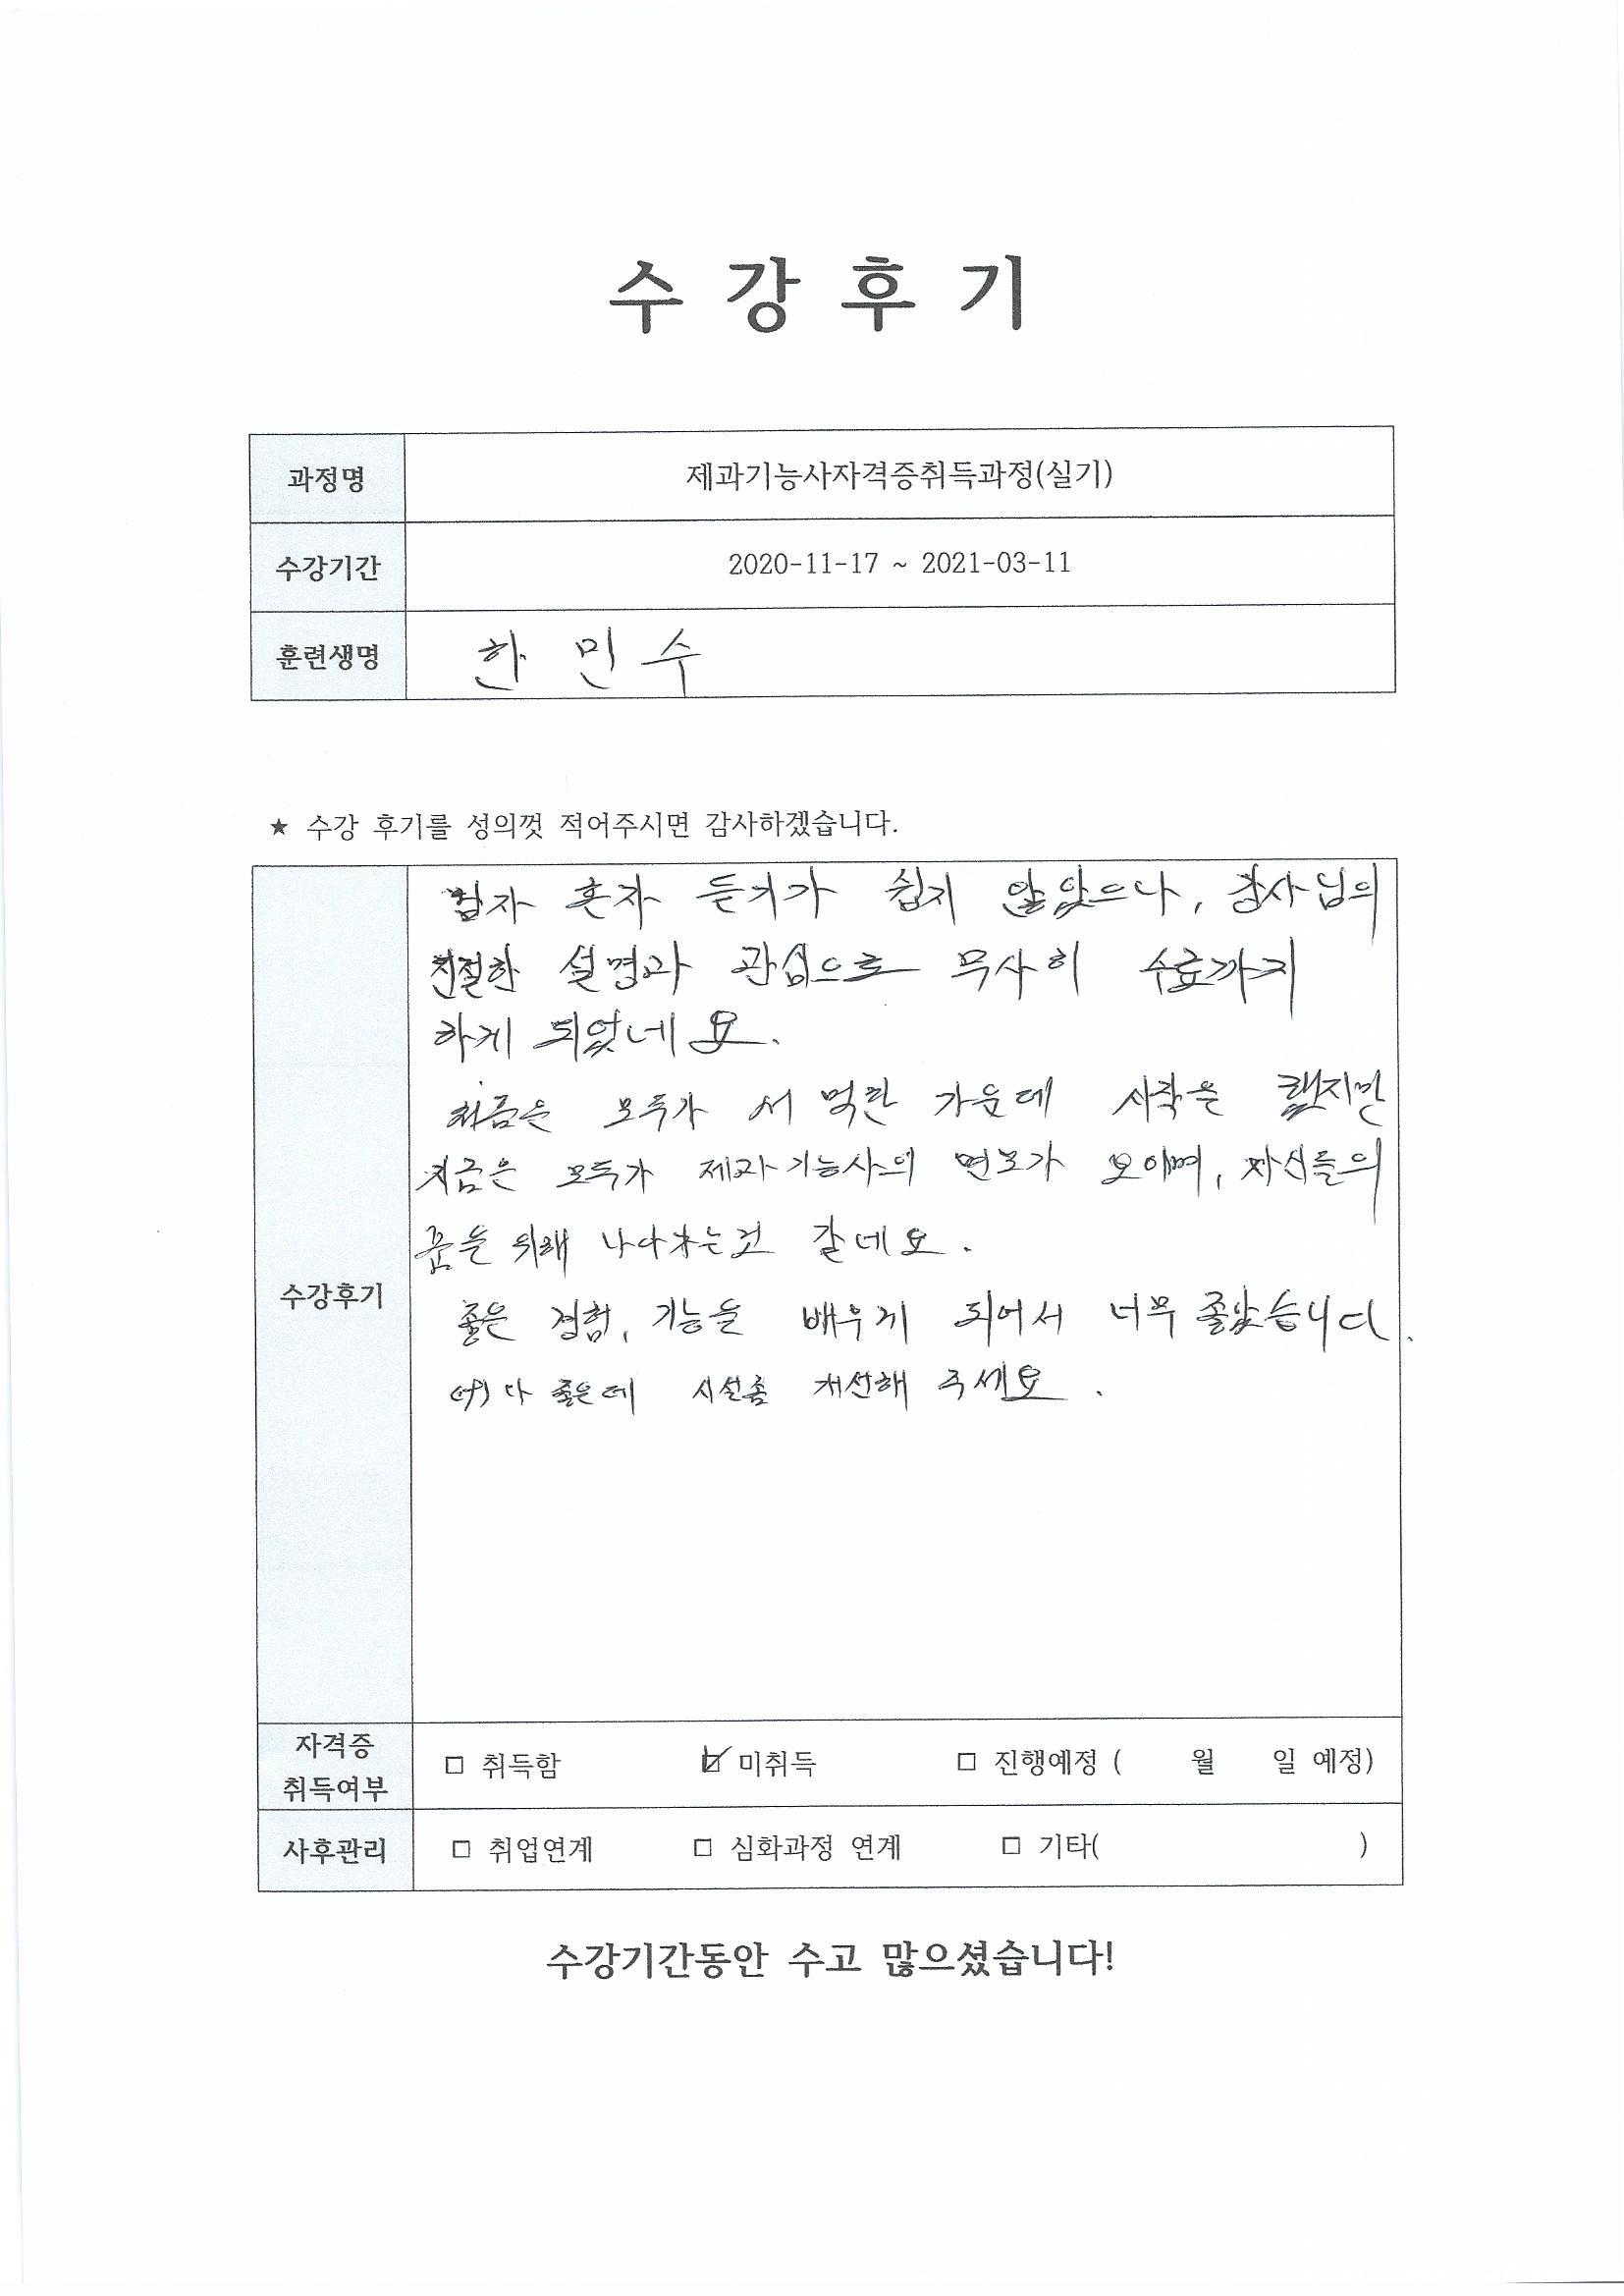 수강후기
과정명 제과기능사자격증취득과정(실기)
수강기간 2020-11-17 ~ 2021-03-11
훈련생명 한민수
★ 수강 후기를 성의껏 적어주시면 감사하겠습니다.
남자 혼자 듣기가 쉽지 않았으나, 강사님의
친절한 설명과 관심으로 무사히 수료까지
하게 되었네요.
처음은 모두가 서먹한 가운데 시작은 했지만
지금은 모두가 제과기능사의 면모가 보이며, 자신들의
수강후기
꿈을 위해 나아가는것 같네요.
좋은 경험, 기능을 배우게 되어서 너무 좋았습니다.
다 좋은데 시설좀 개선해 주세요.
자격증 취득여부 □ 취득함 ☑ 미취득 □ 진행예정 ( 월 일 예정)
사후관리 □ 취업연계 □ 심화과정 연계 □ 기타( )
수강기간동안 수고 많으셨습니다!